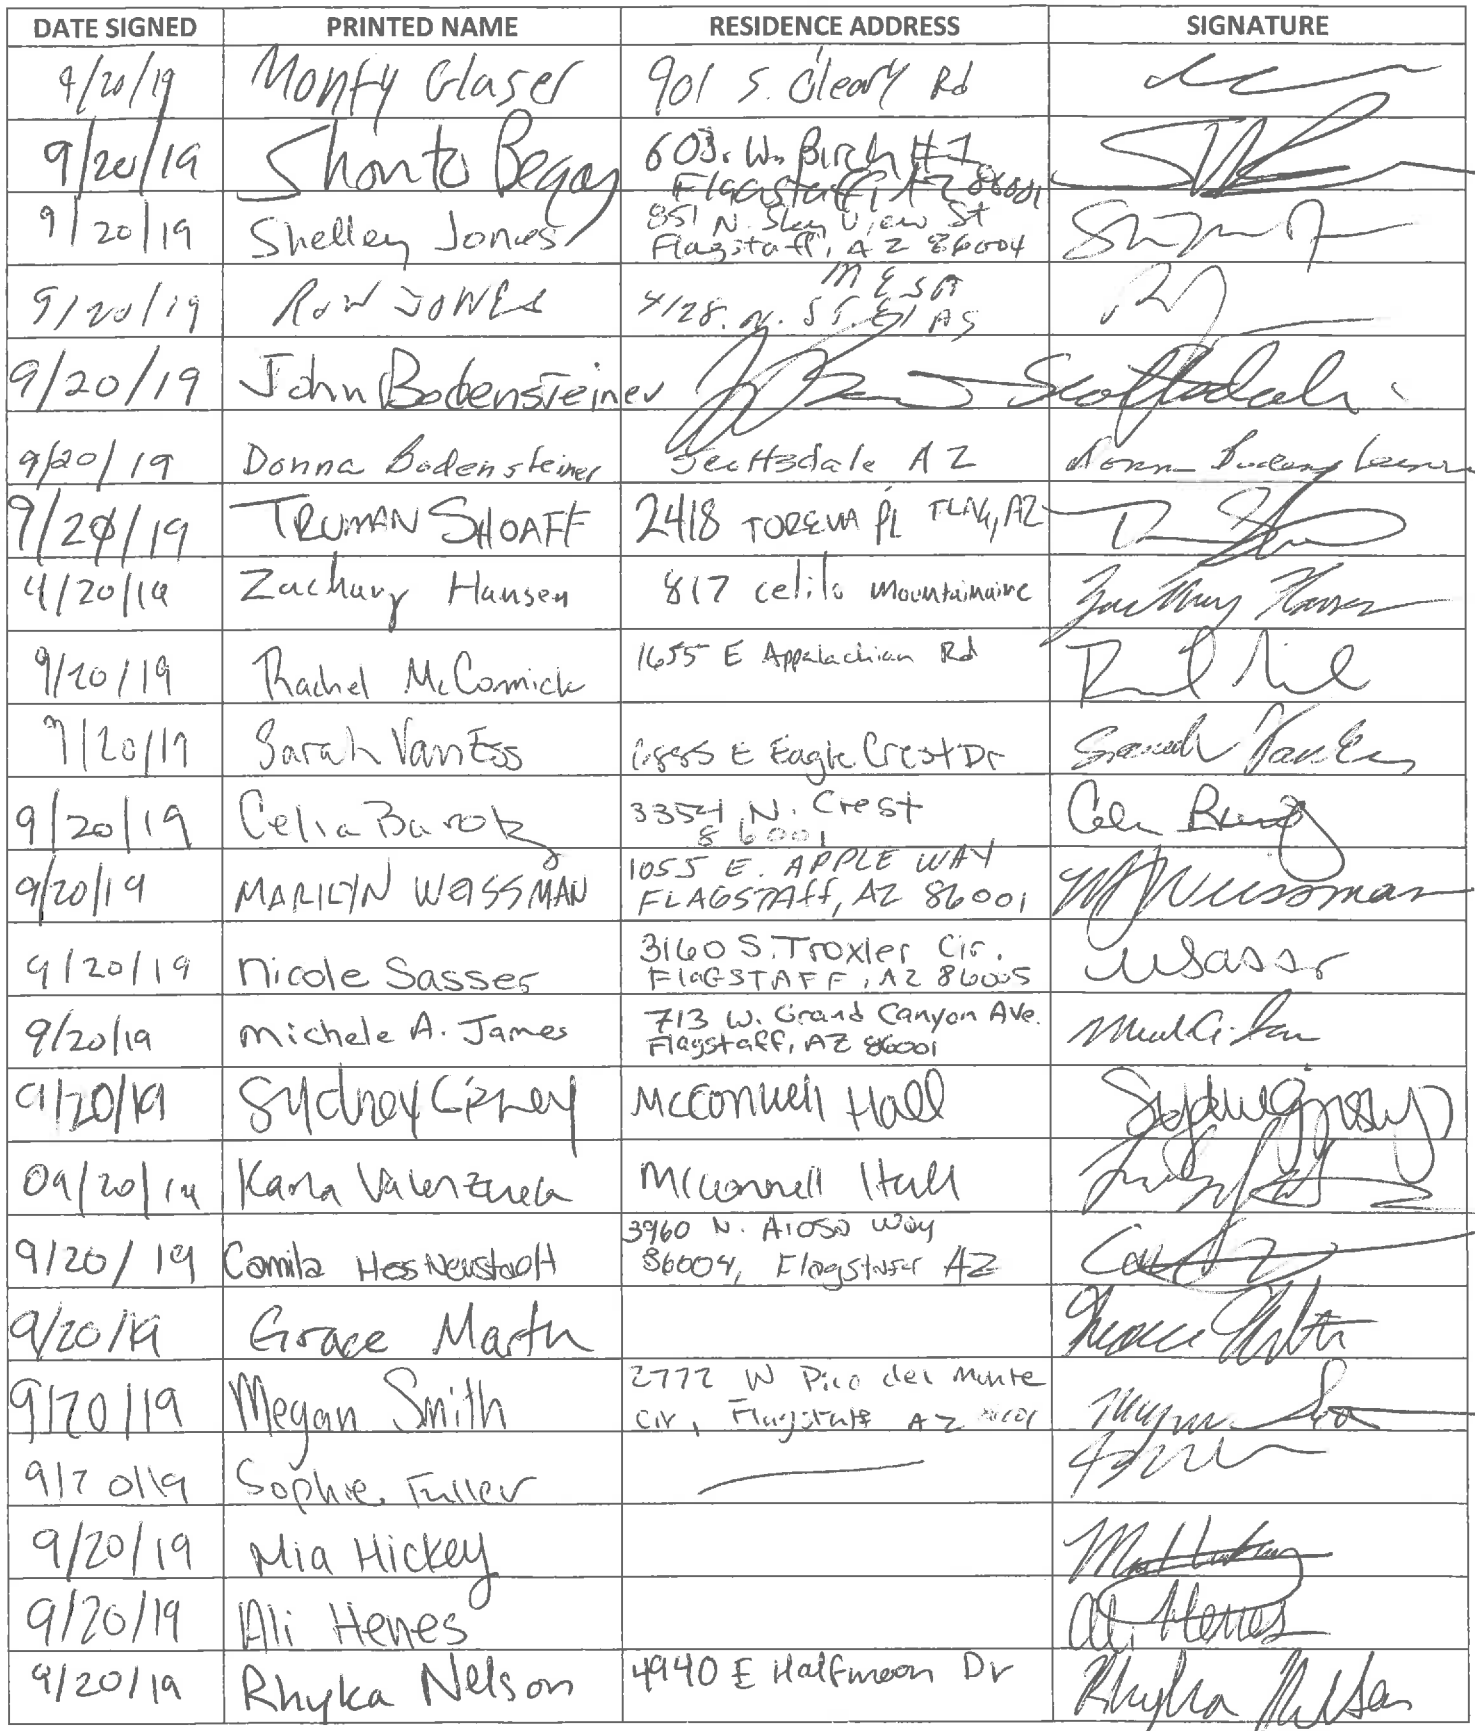 DATE SIGNED PRINTED NAME RESIDENCE ADDRESS SIGNATURE
9/20/19 Monty Glaser 901 S. Cleary Rd
9/20/19 Shonto Begay 603. W. Birch #1
Flagstaff, AZ 86001
9/20/19 Shelley Jones 851 N. Sky View St
Flagstaff, AZ 86004
MESA
9/20/19 RON JONES 4128. N.
9/20/19 John Bodensteiner Scottsdale
9/20/19 Donna Bodensteiner Scottsdale AZ Donna Bodensteiner
9/20/19 TRUMAN SHOAFF 2418 TOREVA PL FLAG, AZ
9/20/19 Zachary Hansen 817 celilo Mountainaire Zachary Hansen
9/20/19 Rachel McCormick 1655 E Appalachian Rd
9/20/19 Sarah VanEss 6885 E Eagle Crest Dr Sarah VanEss
9/20/19 Celia Barotz 3354 N. Crest
86001
9/20/19 MARILYN WEISSMAN 1055 E. APPLE WAY
FLAGSTAFF, AZ 86001 M Weissman
9/20/19 Nicole Sasser 3160 S. Troxler Cir.
FLAGSTAFF, AZ 86005 NSasser
9/20/19 Michele A. James 713 W. Grand Canyon Ave.
Flagstaff, AZ 86001
9/20/19 Sydney Gipney McConnell Hall
09/20/19 Karla Valenzuela McConnell Hall
9/20/19 Camila Hes Neustadt 3960 N. Aioso Way
86004, Flagstaff AZ
9/20/19 Grace Martn
9/20/19 Megan Smith 2772 W Pico del Monte
cir, Flagstaff AZ
9/20/19 Sophie Fuller
9/20/19 Mia Hickey
9/20/19 Ali Henes Ali Henes
9/20/19 Rhyka Nelson 4940 E Halfmoon Dr Rhyka Nelson